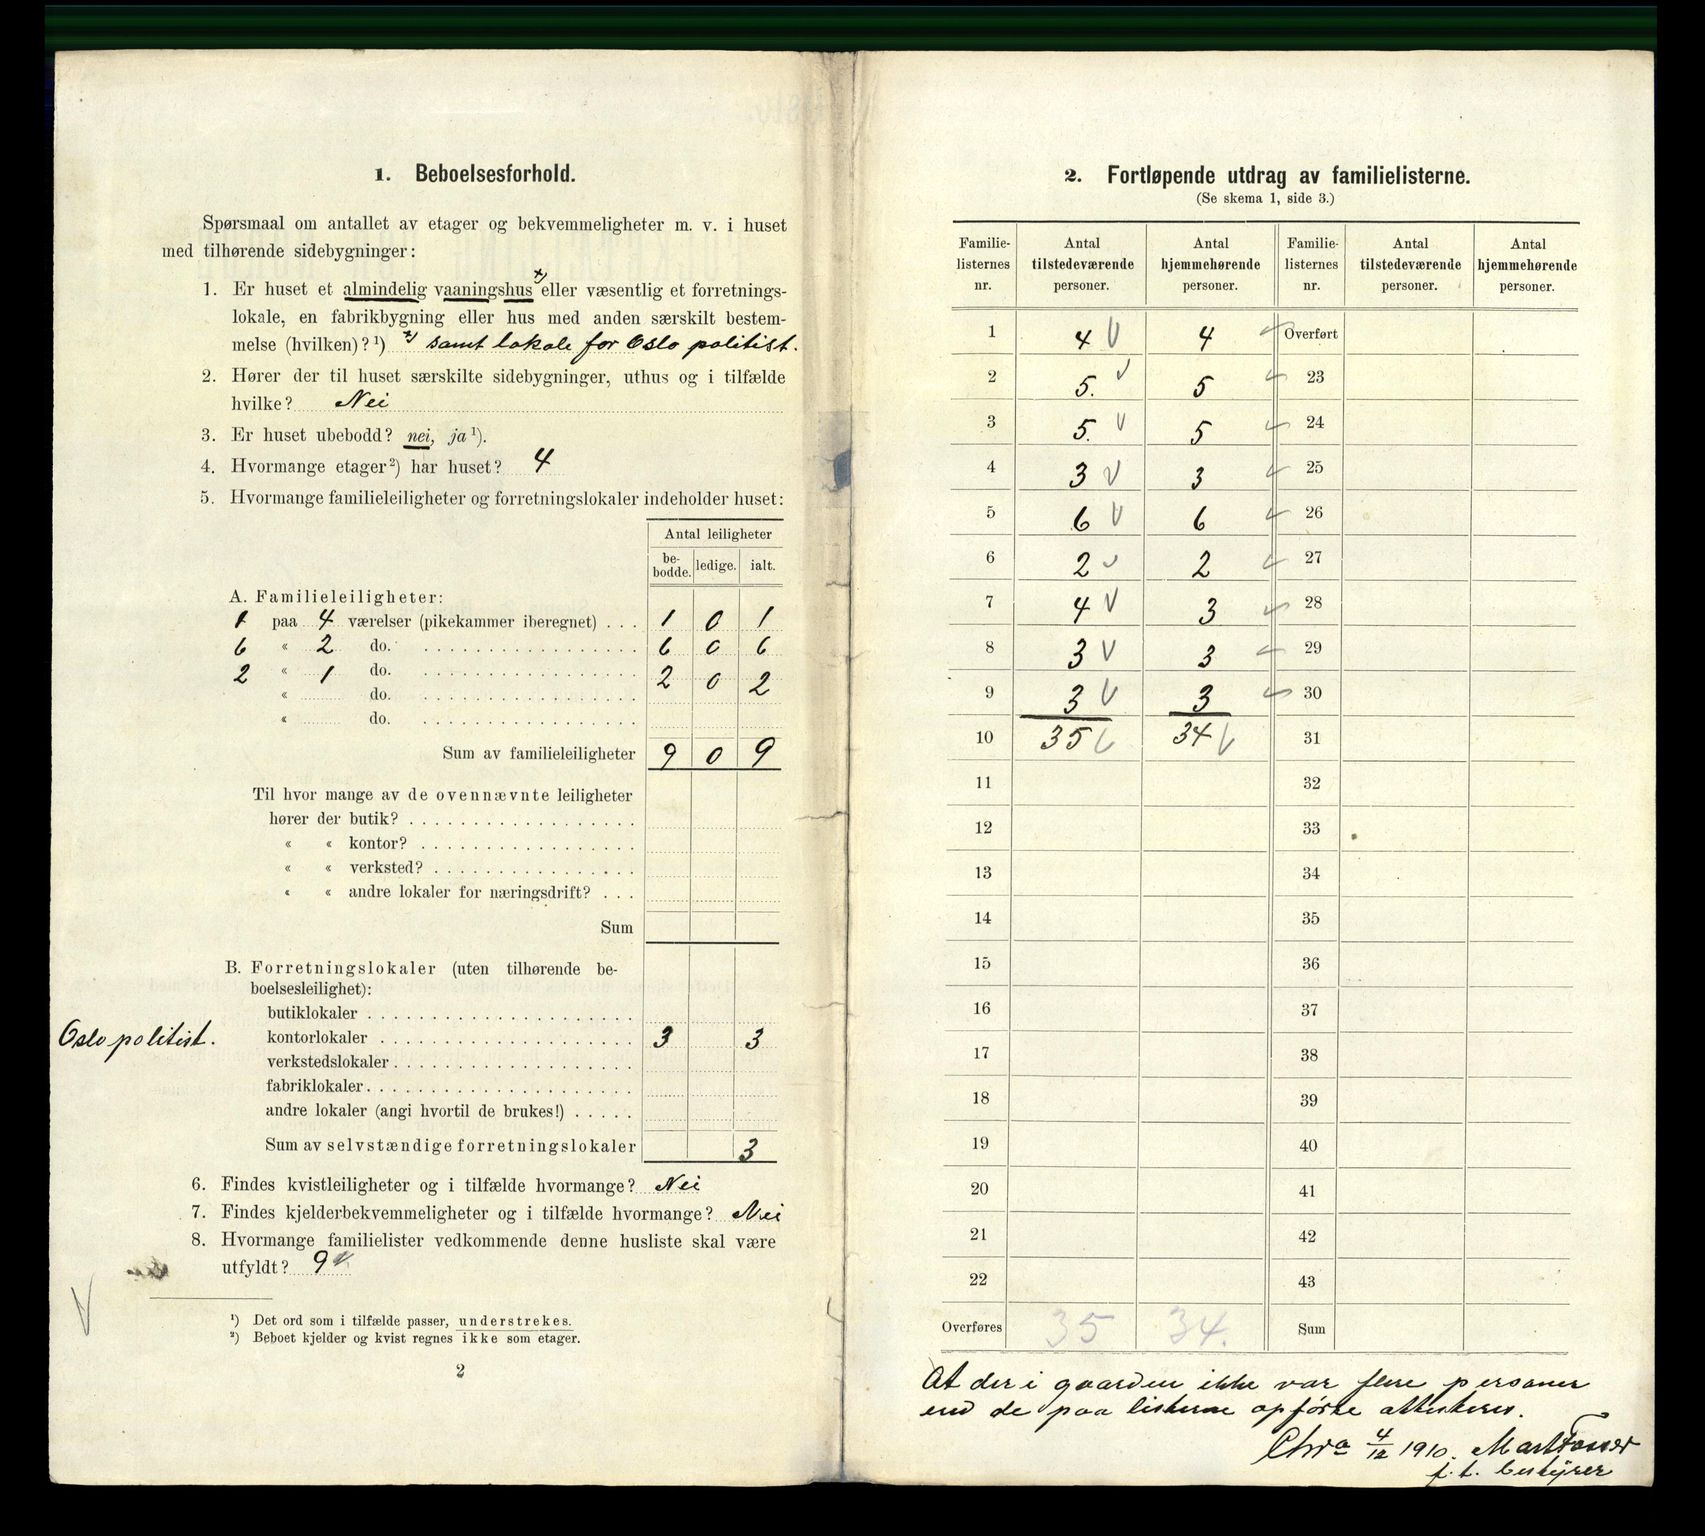 1. Beboelsesforhold.
Spørsmaal om antallet av etager og bekvemmeligheter m. v. i huset
med tilhørende sidebygninger:
1. Er huset et almindelig vaaningshus x) eller væsentlig et forretnings-
lokale, en fabrikbygning eller hus med anden særskilt bestem-
melse (hvilken)? 1) x) samt lokale for Oslo politist.
2. Hører der til huset særskilte sidebygninger, uthus og i tilfælde
hvilke? Nei
3. Er huset ubebodd? nei, ja 1).
4. Hvormange etager 2) har huset? 4
5. Hvormange familieleiligheter og forretningslokaler indeholder huset:
Antal leiligheter
be-bodde. ledige. ialt.
A. Familieleiligheter:
1 paa 4 værelser (pikekammer iberegnet) . . . 1 0 1
6 « 2 do. 6 0 6
2 « 1 do. 2 0 2
« do.
« do.
Sum av familieleiligheter 9 0 9
Til hvor mange av de ovennævnte leiligheter
hører der butik?
« « kontor?
« « verksted?
« « andre lokaler for næringsdrift? . . .
Sum
B. Forretningslokaler (uten tilhørende be-
boelsesleilighet):
butiklokaler
Oslo politist. kontorlokaler 3 3
verkstedslokaler
fabriklokaler
andre lokaler (angi hvortil de brukes!)
Sum av selvstændige forretningslokaler 3
6. Findes kvistleiligheter og i tilfælde hvormange? Nei
7. Findes kjelderbekvemmeligheter og i tilfælde hvormange? Nei
8. Hvormange familielister vedkommende denne husliste skal være
utfyldt? 9
1) Det ord som i tilfælde passer, understrekes.
2) Beboet kjelder og kvist regnes ikke som etager.
2
2. Fortløpende utdrag av familielisterne.
(Se skema 1, side 3.)
Familie-listernes nr. Antal tilstedeværende personer. Antal hjemmehørende personer. Familie-listernes nr. Antal tilstedeværende personer. Antal hjemmehørende personer.
1 4 4 Overført
2 5. 5 23
3 5. 5 24
4 3 3 25
5 6 6 26
6 2 2 27
7 4 3 28
8 3 3 29
9 3 3 30
10 35 34 31
11 32
12 33
13 34
14 35
15 36
16 37
17 38
18 39
19 40
20 41
21 42
22 43
Overføres 35 34. Sum
At der i gaarden ikke var flere personer
end de paa listerne opførte attesteres.
Chra 4/12 1910.
f. t. bestyrer